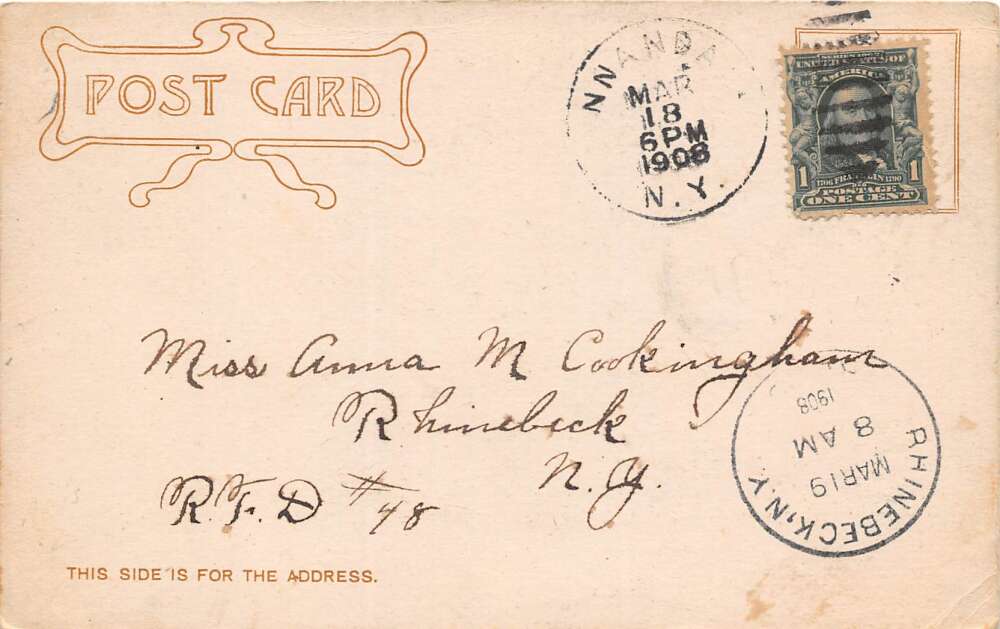 POST CARD
NNANDA
MAR
18
6 PM
1908
N.Y.
SERIES 1902
UNITED STATES OF
AMERICA
1706 FRANKLIN 1790
1 POSTAGE 1
ONE CENT
Miss Anna M Cookingham
Rhinebeck
N.Y.
R.F.D #48
RHINEBECK, N.Y.
MAR 19
8 AM
1908
THIS SIDE IS FOR THE ADDRESS.